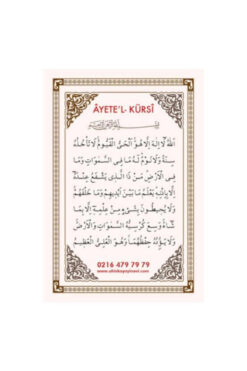 ÂYETE'L- KÜRSÎ
بِسْمِ اللهِ الرَّحْمٰنِ الرَّحِيمِ
اَللهُ لَا اِلٰهَ اِلَّا هُوَ اَلْحَىُّ الْقَيُّومُ لَا تَأْخُذُهُ
سِنَةٌ وَلَا نَوْمٌ لَهُ مَا فِى السَّمٰوَاتِ وَمَا
فِى الْاَرْضِ مَنْ ذَا الَّذِى يَشْفَعُ عِنْدَهُ
اِلَّا بِاِذْنِهِ يَعْلَمُ مَا بَيْنَ اَيْدِيهِمْ وَمَا خَلْفَهُمْ
وَلَا يُحِيطُونَ بِشَىْءٍ مِنْ عِلْمِهِ اِلَّا بِمَا
شَاءَ وَسِعَ كُرْسِيُّهُ السَّمٰوَاتِ وَالْاَرْضَ
وَلَا يَؤُدُهُ حِفْظُهُمَا وَهُوَ الْعَلِىُّ الْعَظِيمُ
0216 479 79 79